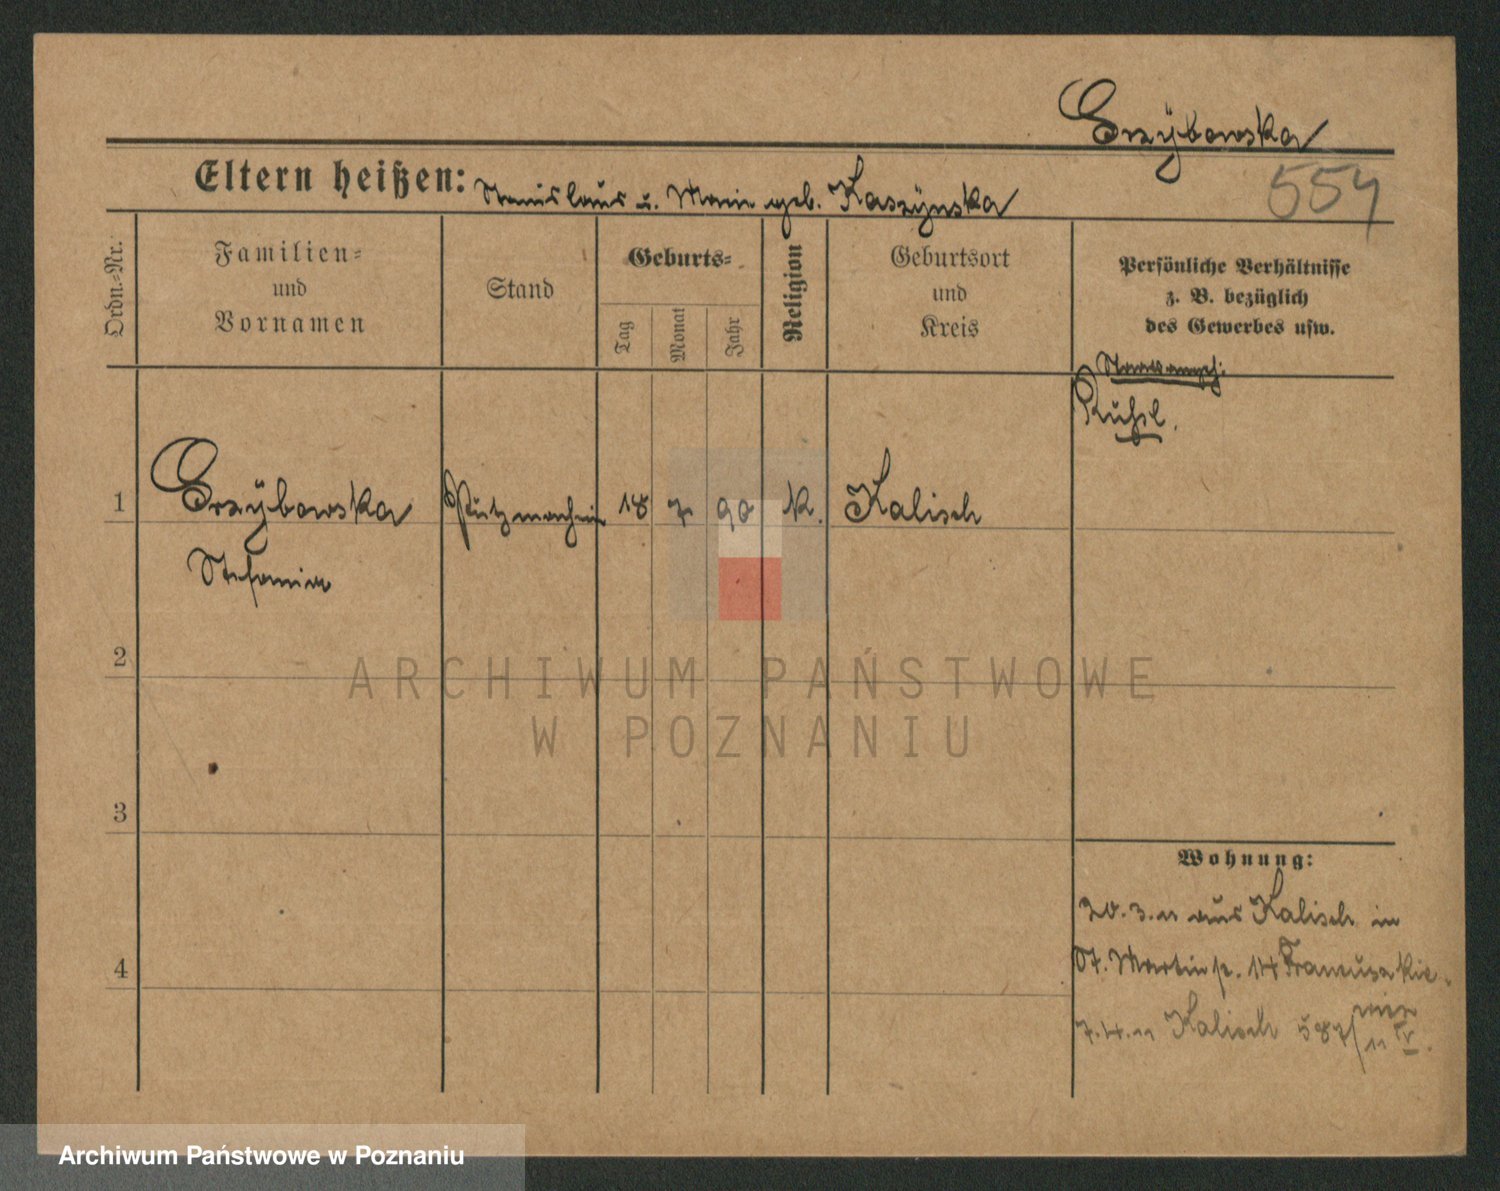 Grzybowska
554
Eltern heißen: Stanislaus u. Marie geb. Kaszynska
Ordn.-Nr.
Familien-
und
Vornamen
Stand
Geburts-
Tag
Monat
Jahr
Religion
Geburtsort
und
Kreis
Persönliche Verhältnisse
z. B. bezüglich
des Gewerbes usw.
Staatsangeh:
Rußl.
1
Grzybowska
Stefania
Putzmacherin
18
7
90
K.
Kalisch
2
3
4
Wohnung:
20.3.11 aus Kalisch in
St. Martinstr. 14 Franciszkie-
wicz
7.4.11 Kalisch 587/11 IV.
ARCHIWUM PAŃSTWOWE
W POZNANIU
Archiwum Państwowe w Poznaniu